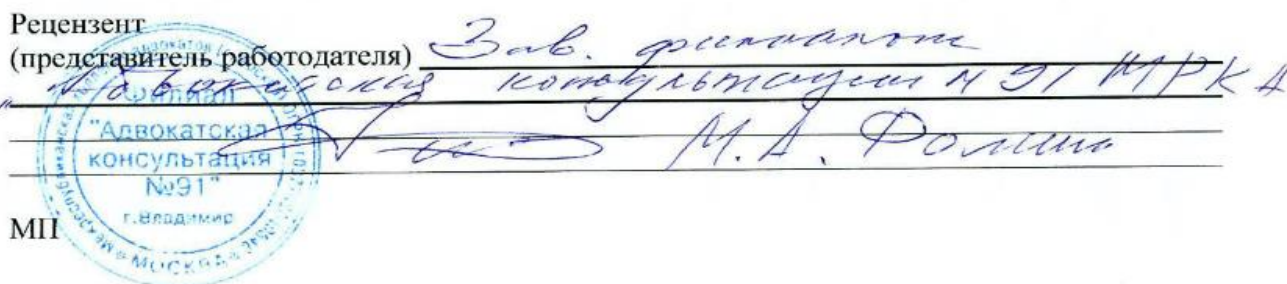 Рецензент
(представитель работодателя) Зав. филиалом
"Адвокатская консультация № 91" МРКА
М.А. Фомин
Филиал
"Адвокатская
консультация
№91"
г.Владимир
МОСКВА
МП